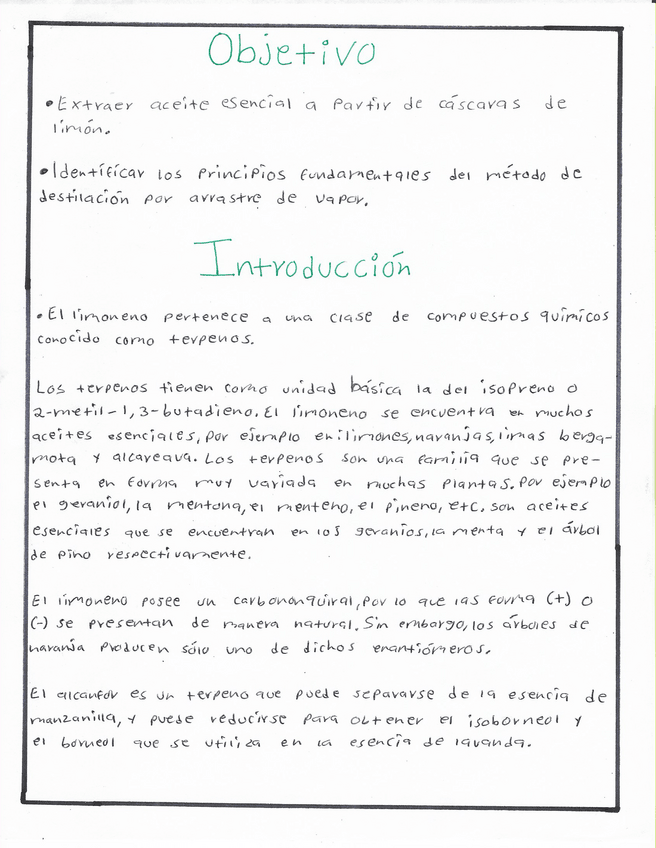 Objetivo
•Extraer aceite esencial a partir de cáscaras de
limón.
•Identificar los principios fundamentales del método de
destilación por arrastre de vapor.
Introducción
•El limoneno pertenece a una clase de compuestos químicos
conocido como terpenos.
Los terpenos tienen como unidad básica la del isopreno o
2-metil-1,3-butadieno. El limoneno se encuentra en muchos
aceites esenciales, por ejemplo en limones, naranjas, limas berga-
mota y alcareava. Los terpenos son una familia que se pre-
senta en forma muy variada en muchas plantas. Por ejemplo
el geraniol, la mentona, el menteno, el pineno, etc. son aceites
esenciales que se encuentran en los geranios, la menta y el árbol
de pino respectivamente.
El limoneno posee un carbononquiral, por lo que las forma (+) o
(-) se presentan de manera natural. Sin embargo, los árboles de
naranja producen sólo uno de dichos enantiómeros.
El alcanfor es un terpeno que puede separarse de la esencia de
manzanilla, y puede reducirse para obtener el isoborneol y
el borneol que se utiliza en la esencia de lavanda.